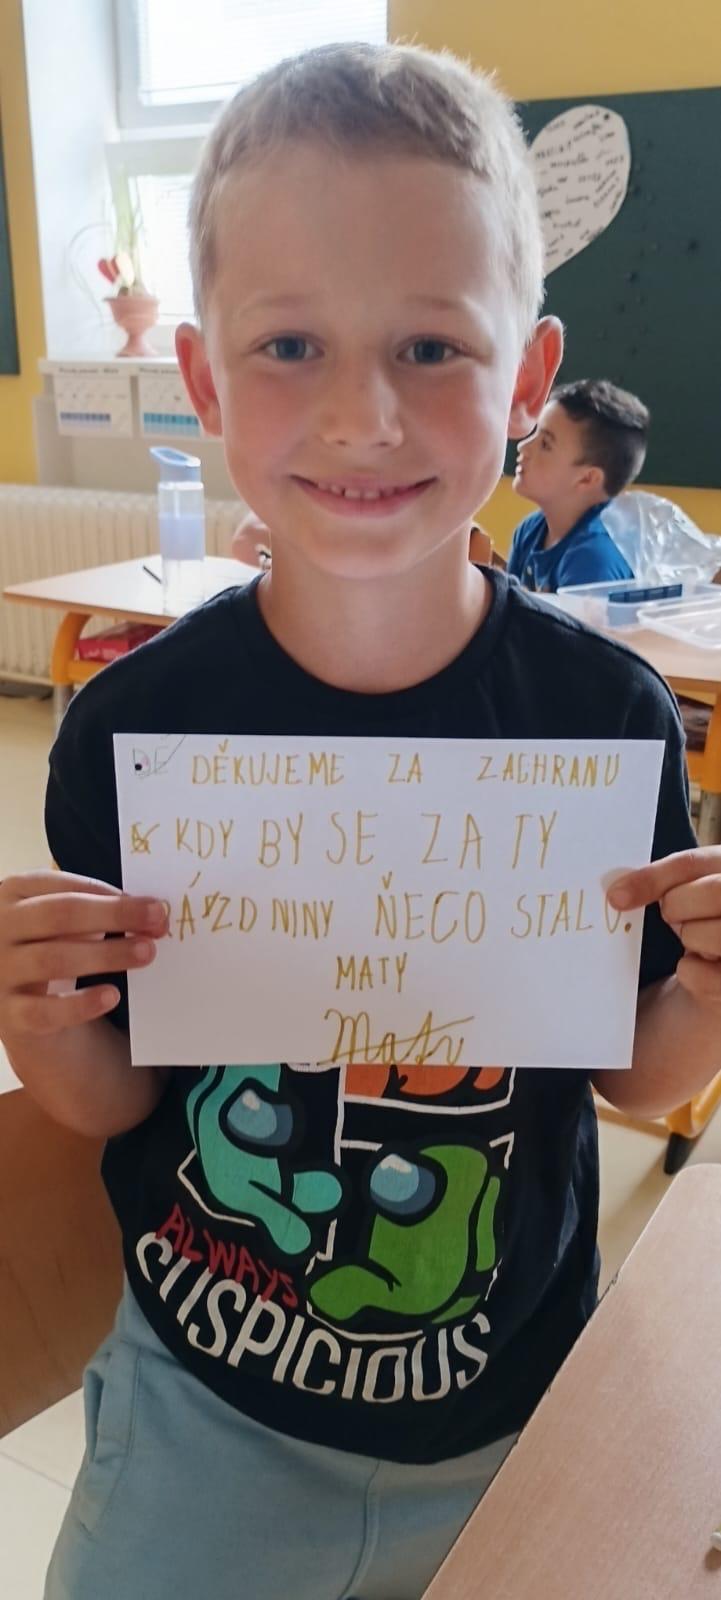 DĚKUJEME ZA ZACHRANU
KDY BY SE ZA TY
RÁZDNINY ŇECO STALO.
MATY
Maty
ALWAYS
SUSPICIOUS